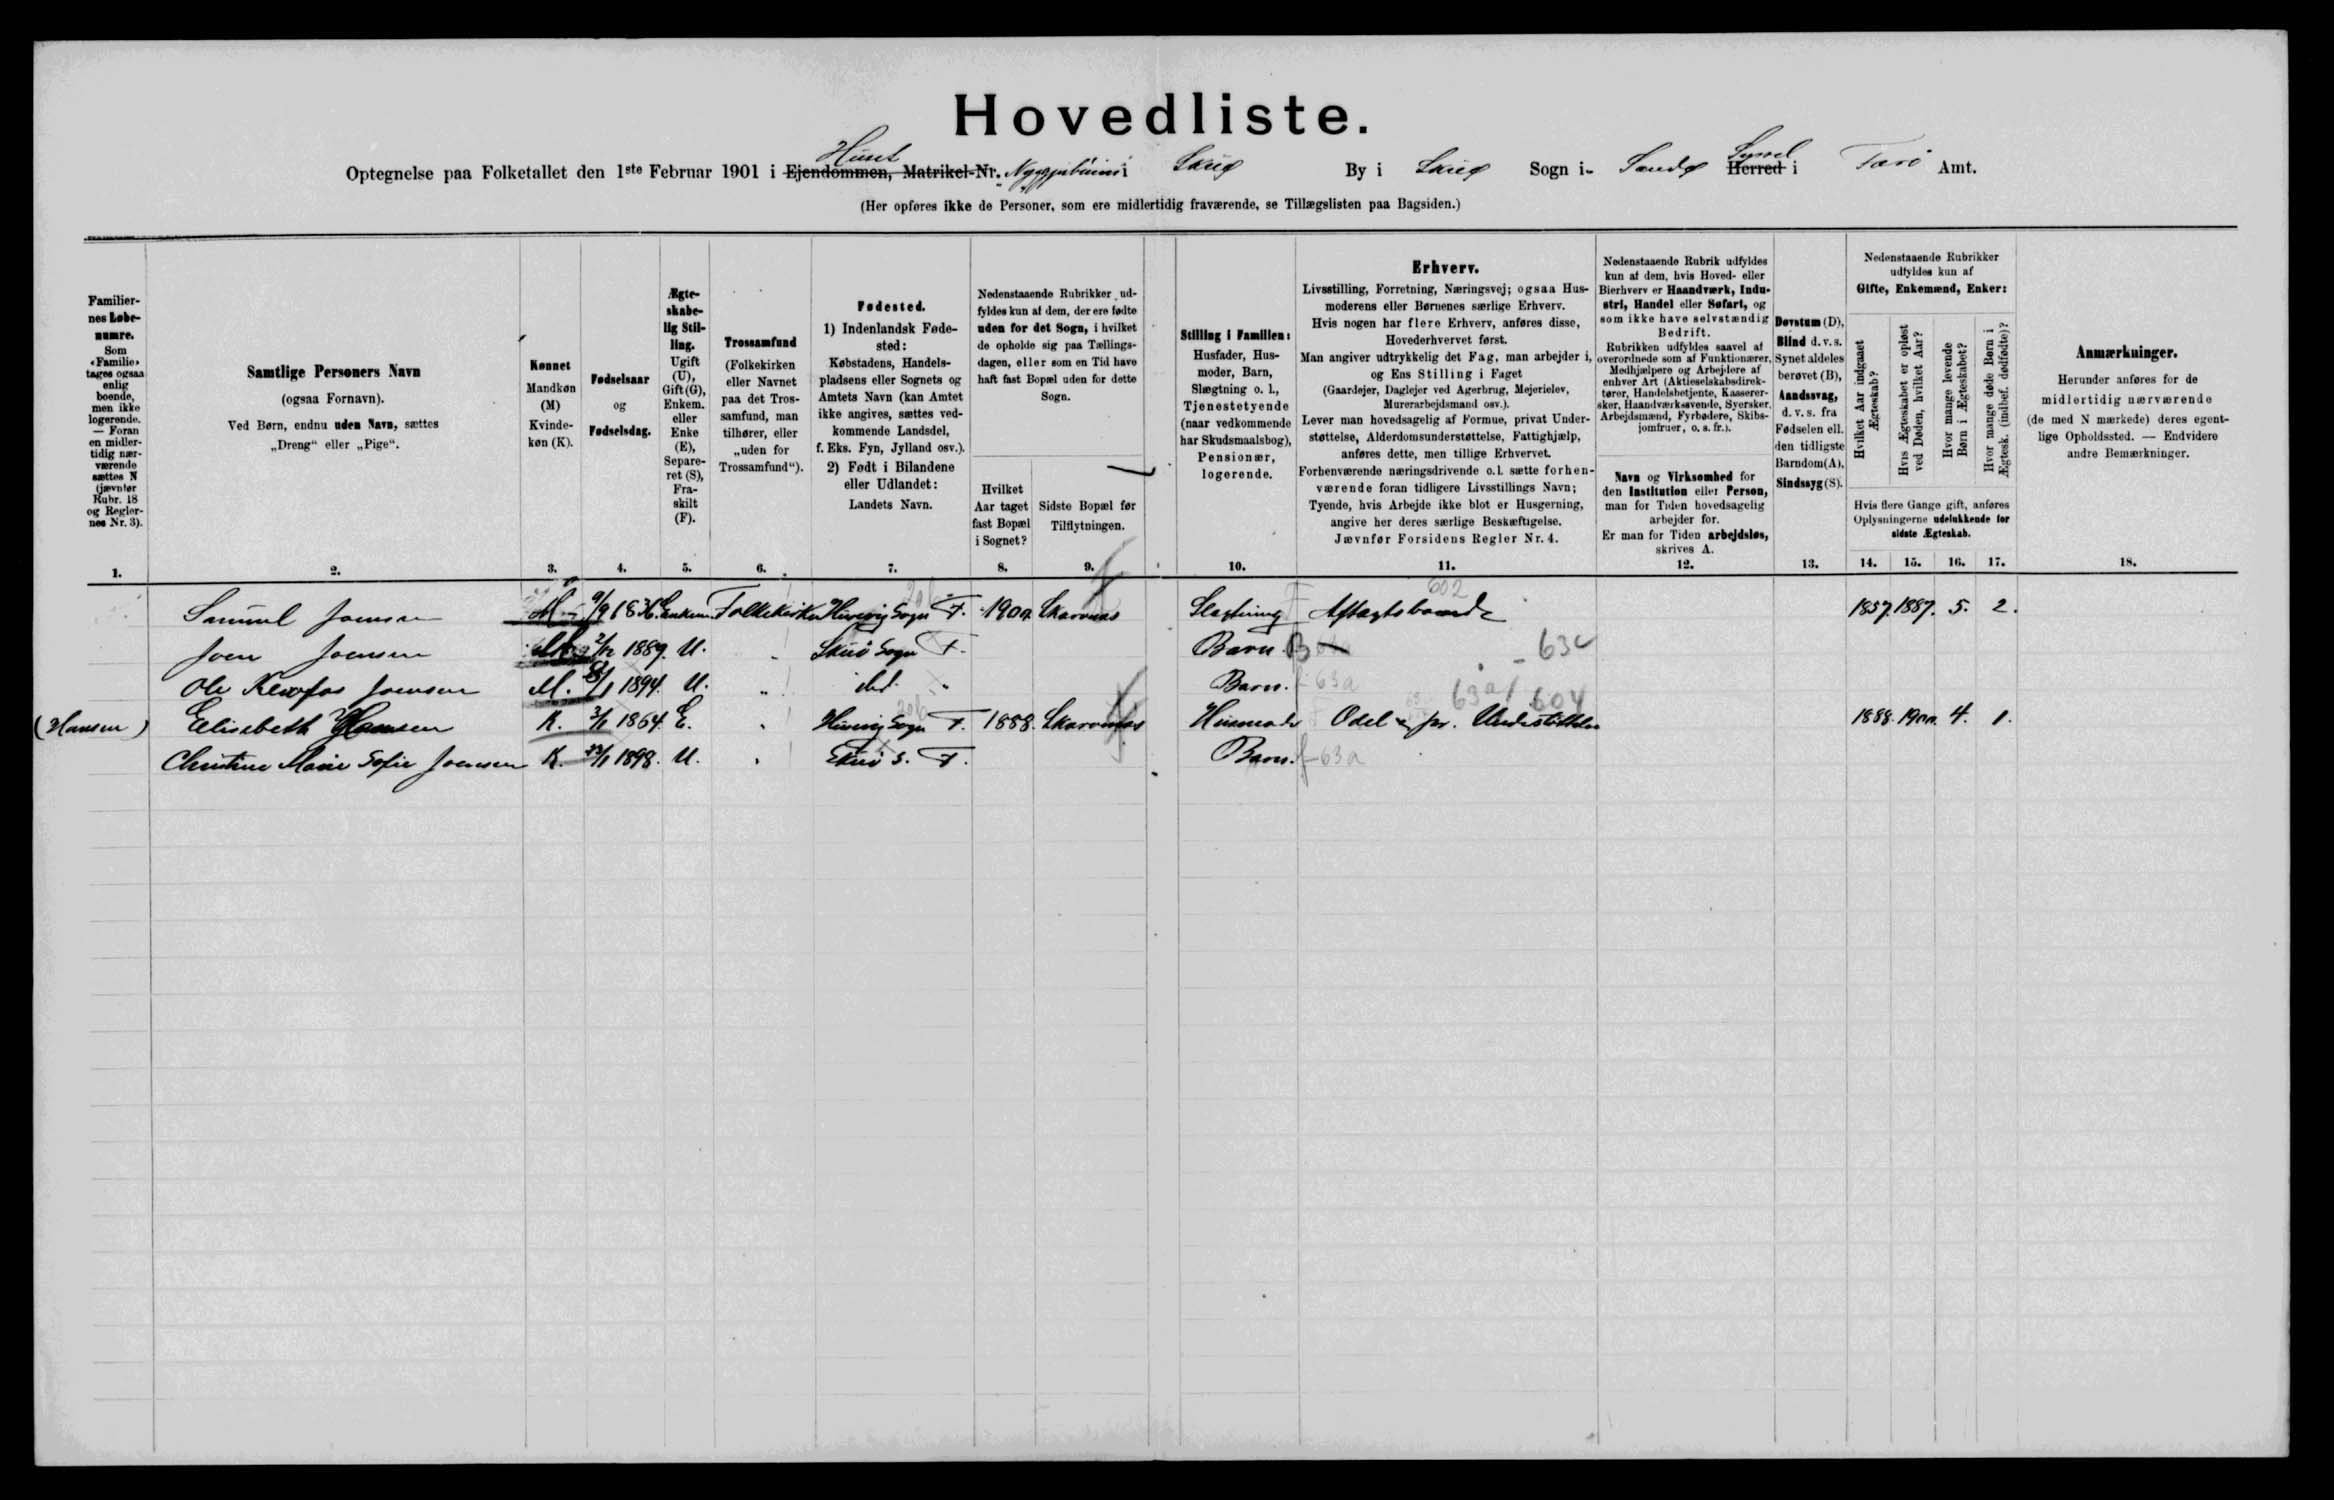 Hovedliste.
Optegnelse paa Folketallet den 1ste Februar 1901 i Ejendommen, Matrikel-Nr. Huset i Skuø By i Skuø Sogn i Sandø Herred Syssel i Færø Amt.
(Her opføres ikke de Personer, som ere midlertidig fraværende, se Tillægslisten paa Bagsiden.)
Familier-
nes Løbe-
numre.
Som
«Familie»
tages ogsaa
enlig
boende,
men ikke
logerende.
— Foran
en midler-
tidig nær-
værende
sættes N
(jævnfør
Rubr. 18
og Regler-
nes Nr. 3).
Samtlige Personers Navn
(ogsaa Fornavn).
Ved Børn, endnu uden Navn, sættes
„Dreng“ eller „Pige“.
Kønnet
Mandkøn
(M)
Kvinde-
køn (K).
Fødselsaar
og
Fødselsdag.
Ægte-
skabe-
lig Stil-
ling.
Ugift
(U),
Gift(G),
Enkem.
eller
Enke
(E),
Separe-
ret (S),
Fra-
skilt
(F).
Trossamfund
(Folkekirken
eller Navnet
paa det Tros-
samfund, man
tilhører, eller
„uden for
Trossamfund“).
Fødested.
1) Indenlandsk Føde-
sted:
Købstadens, Handels-
pladsens eller Sognets og
Amtets Navn (kan Amtet
ikke angives, sættes ved-
kommende Landsdel,
f. Eks. Fyn, Jylland osv.).
2) Født i Bilandene
eller Udlandet:
Landets Navn.
Nedenstaaende Rubrikker ud-
fyldes kun af dem, der ere fødte
uden for det Sogn, i hvilket
de opholde sig paa Tællings-
dagen, eller som en Tid have
haft fast Bopæl uden for dette
Sogn.
Hvilket
Aar taget
fast Bopæl
i Sognet?
Sidste Bopæl før
Tilflytningen.
Stilling i Familien:
Husfader, Hus-
moder, Barn,
Slægtning o. l.,
Tjenestetyende
(naar vedkommende
har Skudsmaalsbog),
Pensionær,
logerende.
Erhverv.
Livsstilling, Forretning, Næringsvej; ogsaa Hus-
moderens eller Børnenes særlige Erhverv.
Hvis nogen har flere Erhverv, anføres disse,
Hovederhvervet først.
Man angiver udtrykkelig det Fag, man arbejder i,
og Ens Stilling i Faget
(Gaardejer, Daglejer ved Agerbrug, Mejerielev,
Murerarbejdsmand osv.).
Lever man hovedsagelig af Formue, privat Under-
støttelse, Alderdomsunderstøttelse, Fattighjælp,
anføres dette, men tillige Erhvervet.
Forhenværende næringsdrivende o.l. sætte forhen-
værende foran tidligere Livsstillings Navn;
Tyende, hvis Arbejde ikke blot er Husgerning,
angive her deres særlige Beskæftigelse.
Jævnfør Forsidens Regler Nr. 4.
Nedenstaaende Rubrik udfyldes
kun af dem, hvis Hoved- eller
Bierhverv er Haandværk, Indu-
stri, Handel eller Søfart, og
som ikke have selvstændig
Bedrift.
Rubrikken udfyldes saavel af
overordnede som af Funktionærer,
Medhjælpere og Arbejdere af
enhver Art (Aktieselskabsdirek-
tører, Handelsbetjente, Kasserer-
sker, Haandværkssvende, Syersker,
Arbejdsmænd, Fyrbødere, Skibs-
jomfruer, o. s. fr.).
Navn og Virksomhed for
den Institution eller Person,
man for Tiden hovedsagelig
arbejder for.
Er man for Tiden arbejdsløs,
skrives A.
Døvstum (D),
Blind d. v. s.
Synet aldeles
berøvet (B),
Aandssvag,
d. v. s. fra
Fødselen ell.
den tidligste
Barndom(A),
Sindssyg(S).
Nedenstaaende Rubrikker
udfyldes kun af
Gifte, Enkemænd, Enker:
Hvilket Aar indgaaet
Ægteskab?
Hvis Ægteskabet er opløst
ved Døden, hvilket Aar?
Hvor mange levende
Børn i Ægteskabet?
Hvor mange døde Børn i
Ægtesk. (indbef. dødfødte)?
Hvis flere Gange gift, anføres
Oplysningerne udelukkende for
sidste Ægteskab.
Anmærkninger.
Herunder anføres for de
midlertidig nærværende
(de med N mærkede) deres egent-
lige Opholdssted. — Endvidere
andre Bemærkninger.
1. 2. 3. 4. 5. 6. 7. 8. 9. 10. 11. 12. 13. 14. 15. 16. 17. 18.
Samuel Joensen M 9/9 1836 Enkem. Folkekirken Hvuvig Sogn F. 1900. Skarvnæs Slægtning Aftægtsbonde 602 1857. 1887. 5. 2.
Joen Joensen M. 2/12 1889. U. " Skuø Sogn F. Barn B 63c
Ole Joensen M. 1894. U. " ibd. " Barn. 63a 63a 604
(Hansen) Elisabeth Hansen K. 3/1 1864. E. " Hvuvig Sogn F. 1888. Skarvnæs Husmoder Odel pr. Understøttelse 1888. 1900. 4. 1.
Christine Marie Sofie Joensen K. 1898. U. " Skuø S. F. Barn. f-63a